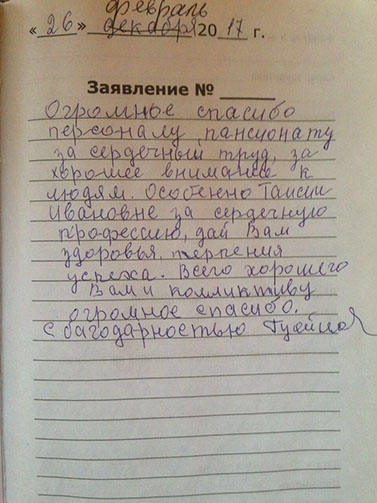 февраль
« 26 » декабря 2017 г.
Заявление № ______
Огромное спасибо
персоналу, пансионату
за сердечный труд, за
хорошее внимание к
людям. Особенно Таисии
Ивановне за сердечную
профессию, дай Вам
здоровья, терпения
успеха. Всего хорошего
Вам и колликтиву
огромное спасибо.
С багодарностью